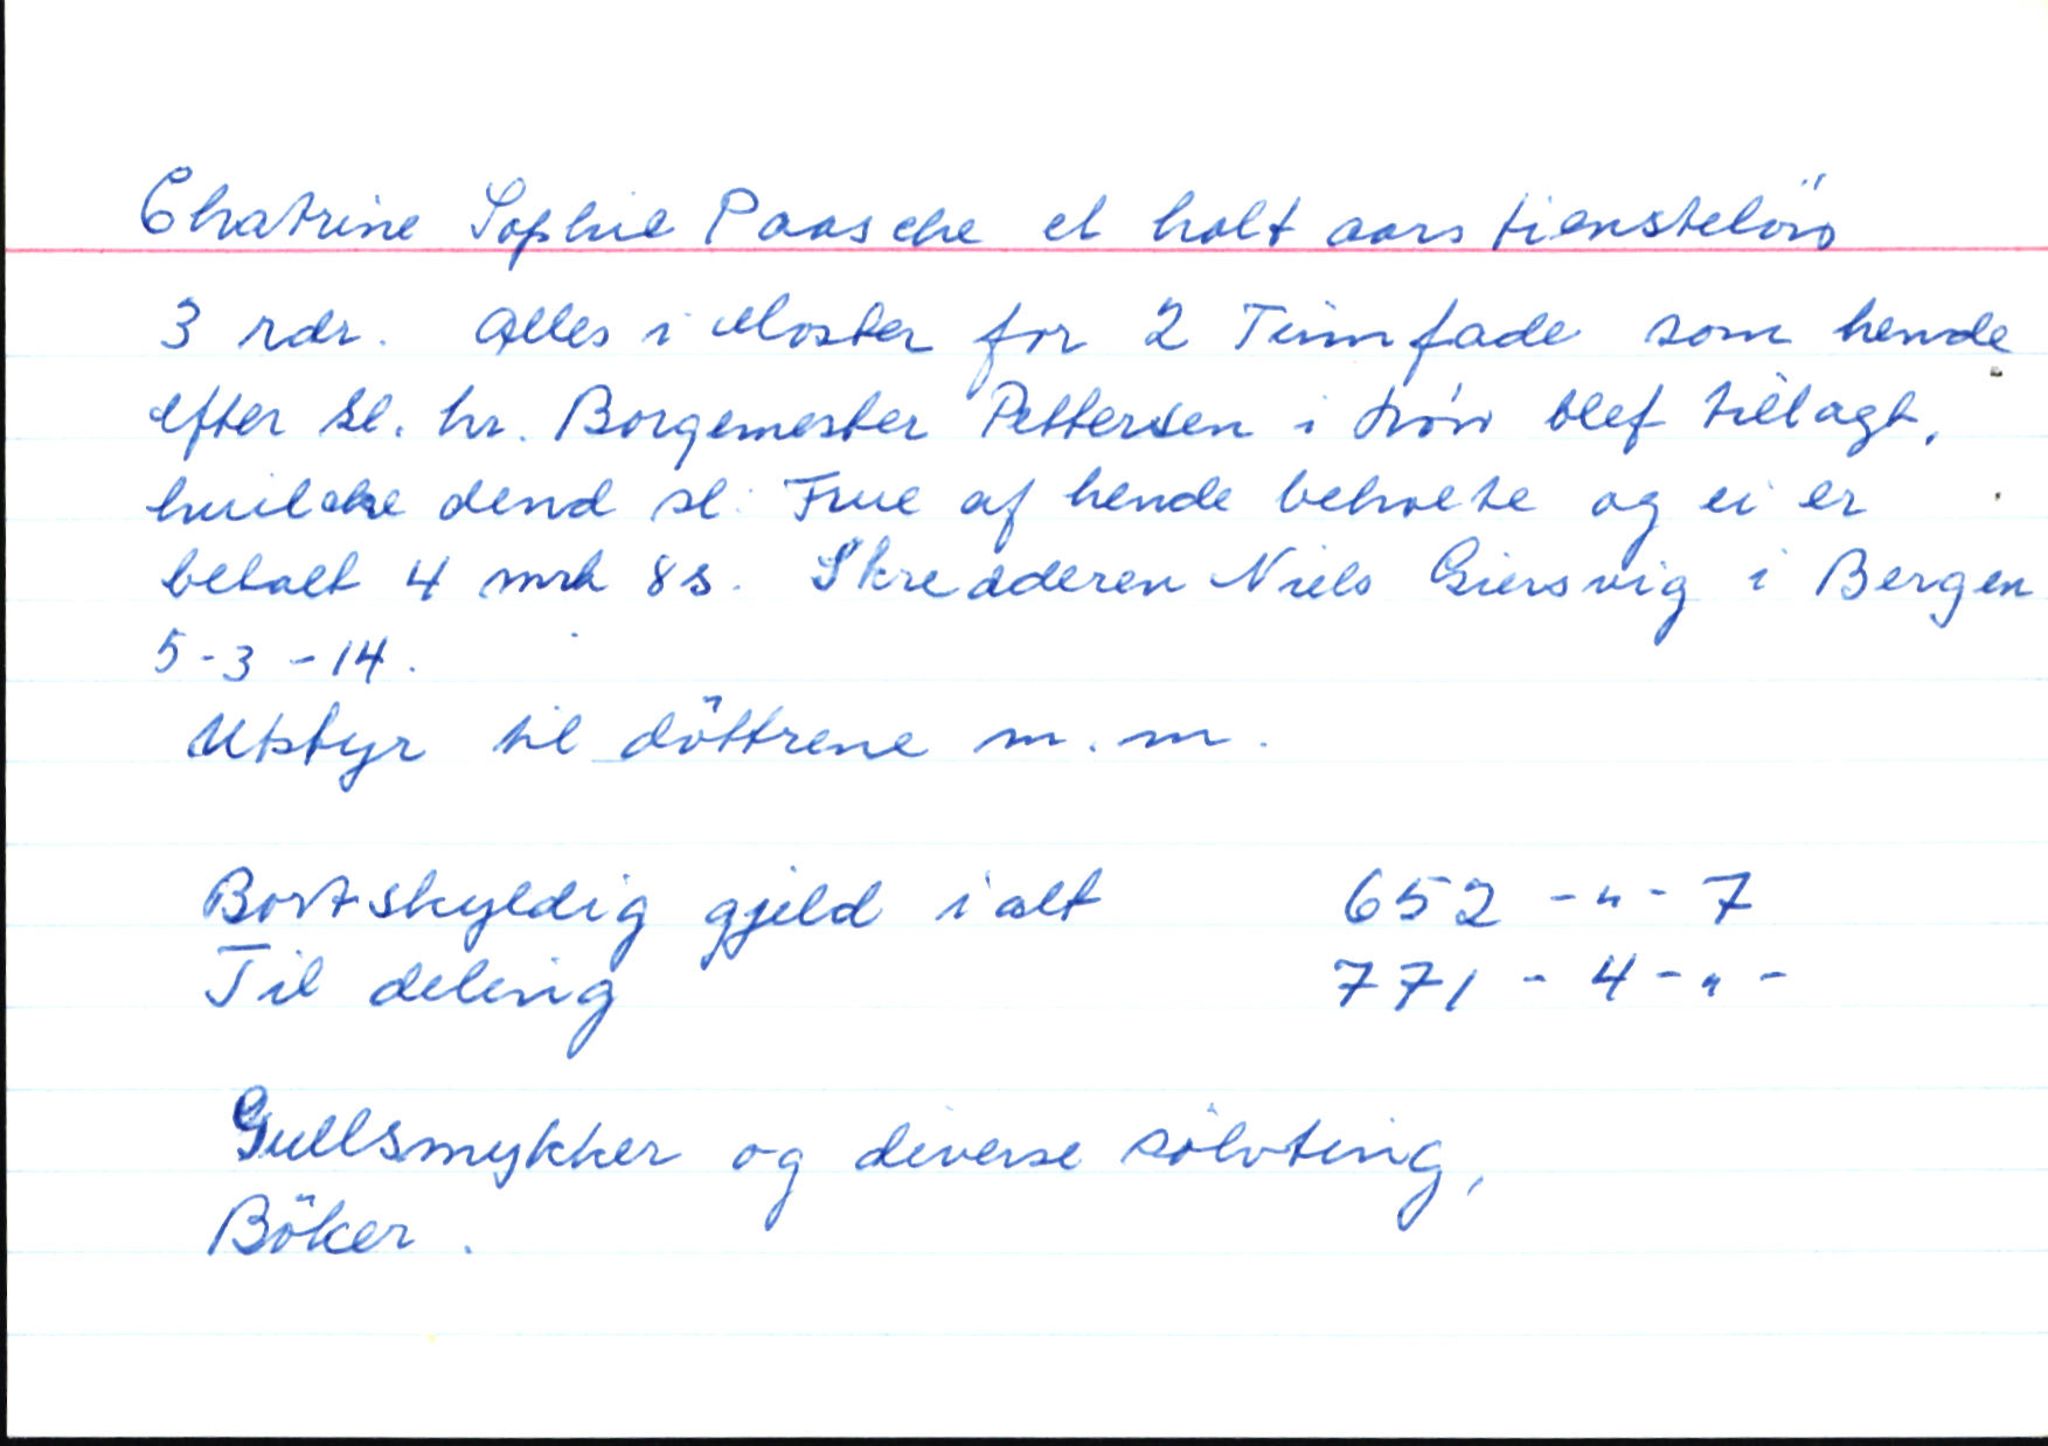 Chatrine Sophie Paasche et halt aars tiensteløn
3 rdr. Alles i Moster for 2 Tinnfade som hende
efter Sl. hr. Borgemester Pettersen i blef tillagt,
huilche dend sl. Frue af hende beholte og ei er
betalt 4 mrk 8 s. Skredderen Niels Giersvig i Bergen
5-3-14.
Utstyr til döttrene m.m.
Bortskyldig gjeld i alt 652 - " - 7
Til deling 771 - 4 - " -
Gullsmykker og diverse sölvting,
Böker.